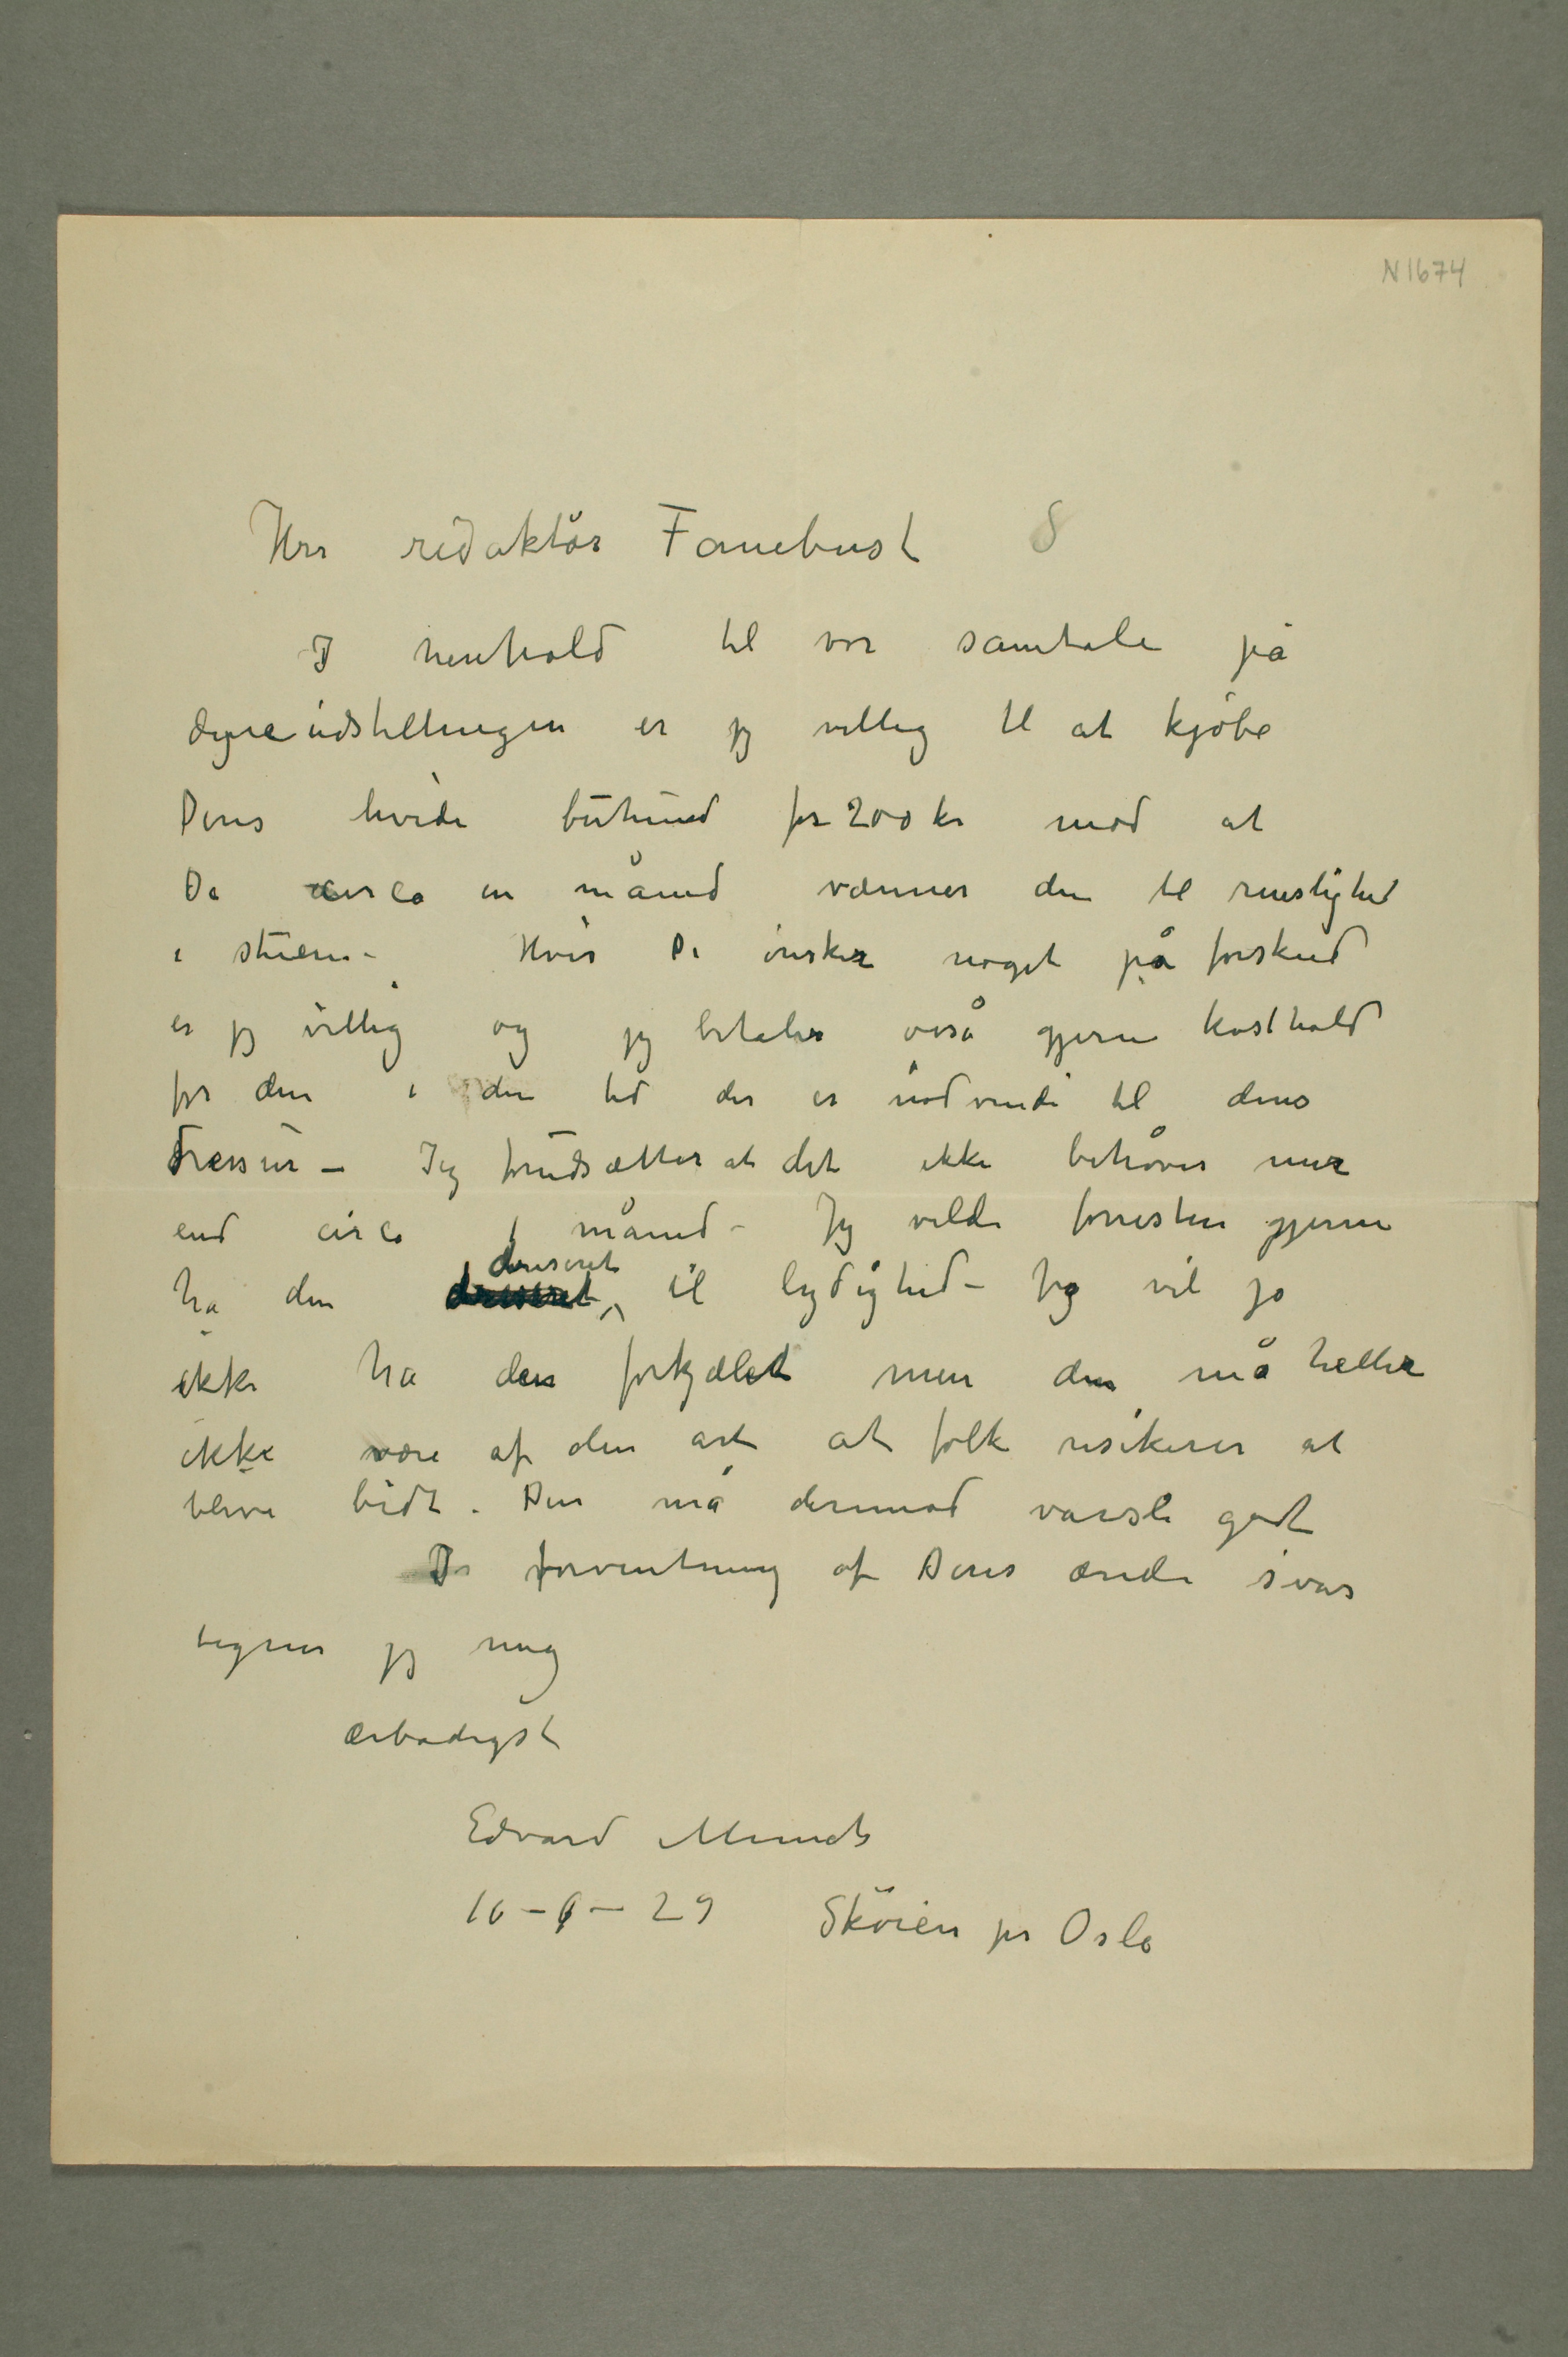 N 1674
Herr redaktör Fanebust
I henhold til vor samtale på
dyreudstillingen er jeg villig til at kjöbe
Deres hvide buhund for 200 kr mod at
De circa en måned vænner den til renslighed
i stuen – Hvis De önsker noget på forskud
er jeg villig og jeg betaler også gjerne kosthold
for den i den tid der er nödvendi til dens
Dressur – Jeg forudsætter at det ikke behöver mer
end circa 1 måned – Jeg vilde forresten gjerne
dresseret
ha den til lydighed – Jeg vil jo
ikke ha den forkjælet men den må heller
ikke være af den art at folk risikerer at
blive bidt. Den må derimod varsle godt
I forventning af Deres ærede svar
tegner jeg mig
ærbødigst
Edvard Munch
10 – 6 – 29 Sköien pr Oslo